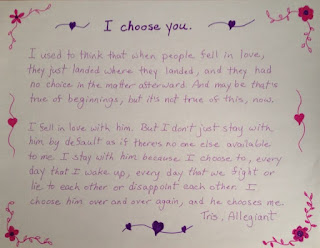 I choose you.
I used to think that when people fell in love,
they just landed where they landed, and they had
no choice in the matter afterward. And may be that's
true of beginnings, but it's not true of this, now.
I fell in love with him. But I don't just stay with
him by default as if there's no one else available
to me. I stay with him because I choose to, every
day that I wake up, every day that we fight or
lie to each other or disappoint each other. I
choose him over and over again, and he chooses me.
Tris, Allegiant